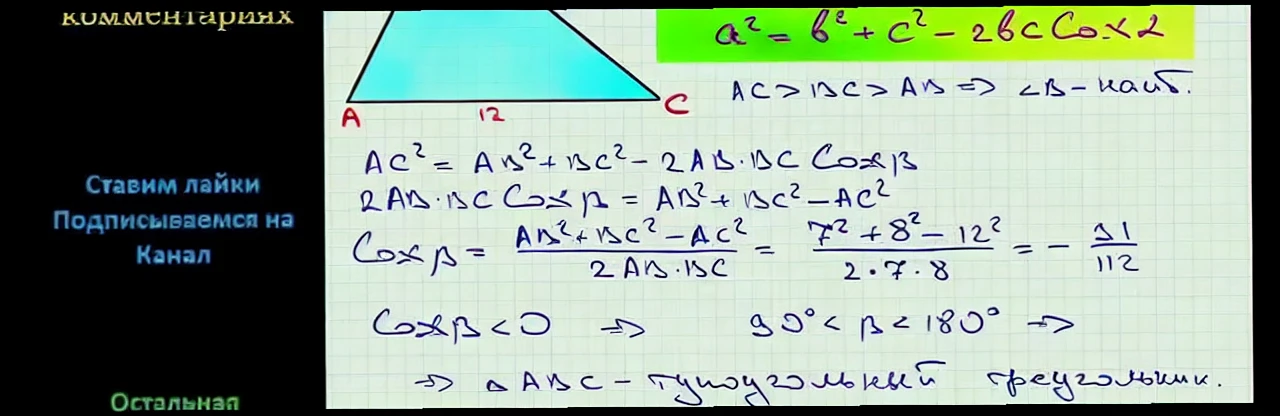 комментариях
Ставим лайки
Подписываемся на
Канал
Остальная
A 12 C
a² = b² + c² - 2bc Cos α
AC > BC > AB => ∠B - наиб.
AC² = AB² + BC² - 2AB·BC Cos β
2AB·BC Cos β = AB² + BC² - AC²
Cos β = (AB² + BC² - AC²)/(2AB·BC) = (7² + 8² - 12²)/(2·7·8) = - 31/112
Cos β < 0 => 90° < β < 180° =>
=> △ABC - тупоугольный треугольник.